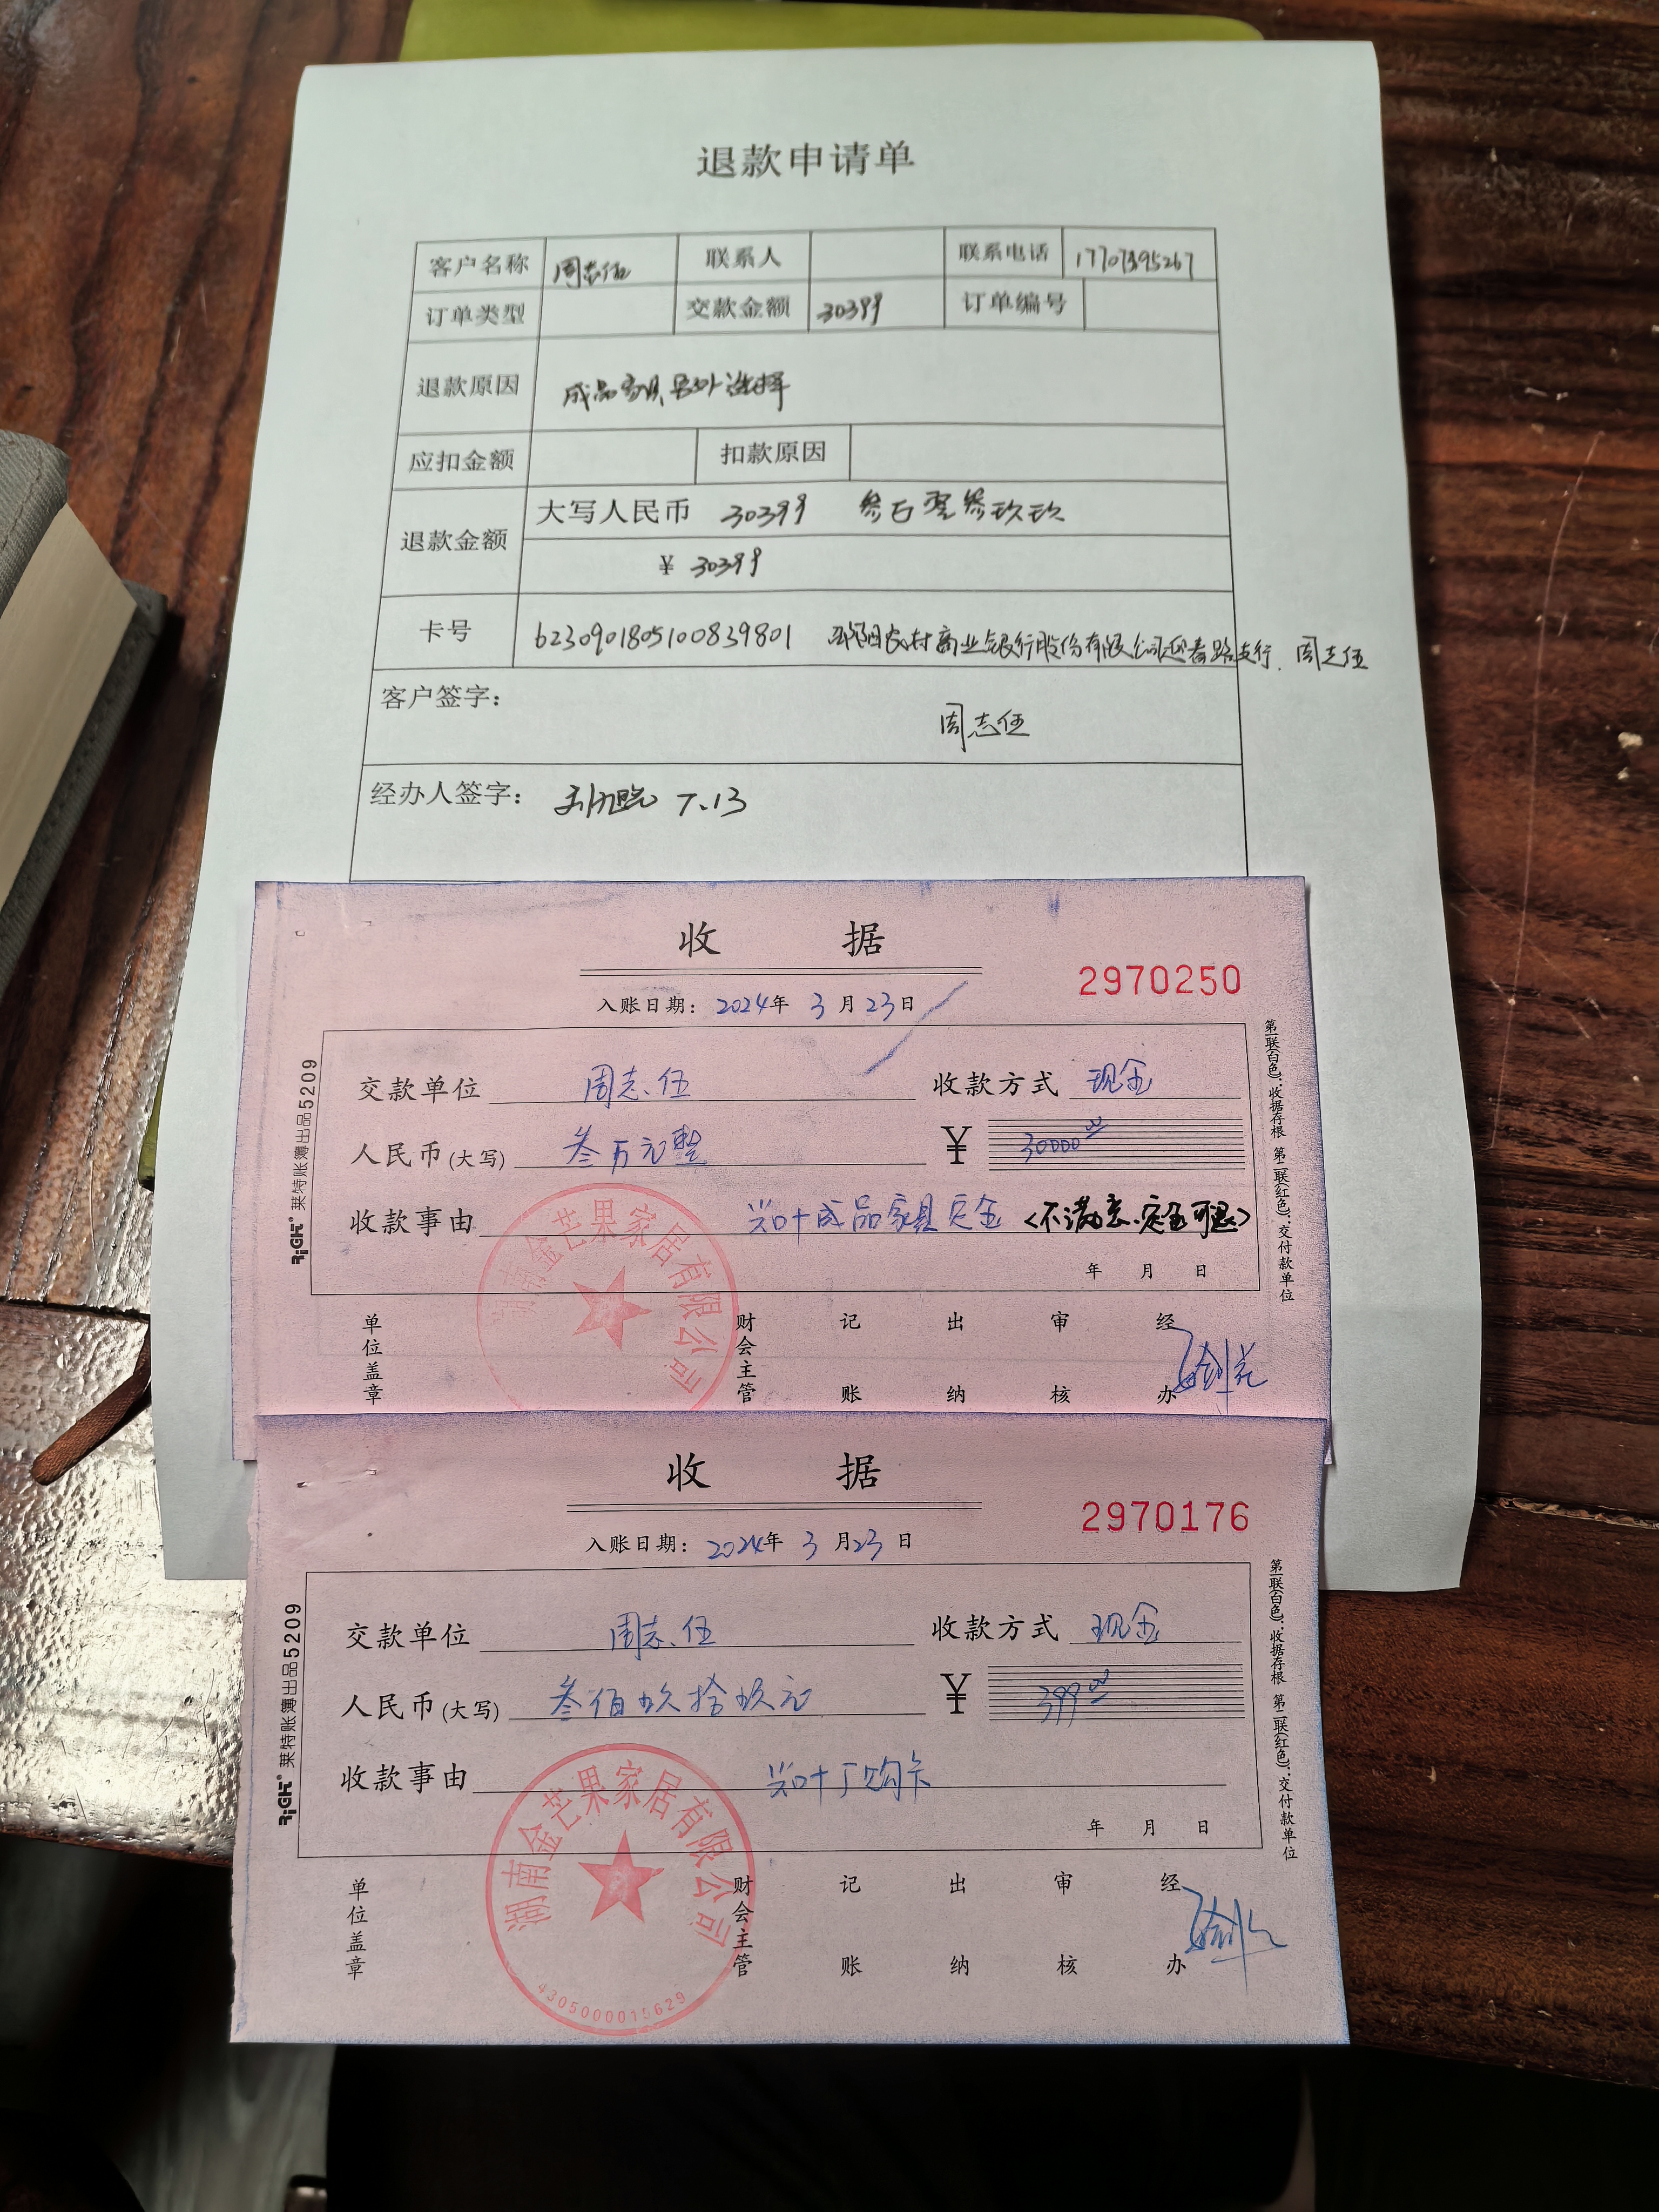 退款申请单
客户名称 周志伍 联系人 联系电话 17707395267
订单类型 交款金额 30399 订单编号
退款原因 成品家具另外选择
应扣金额 扣款原因
退款金额 大写人民币 30399 叁万零叁玖玖
¥ 30399
卡号 6230901805100839801 邵阳农村商业银行股份有限公司迎春路支行. 周志伍
客户签字:
周志伍
经办人签字: 7.13
收 据
2970250
入账日期: 2024年 3月23日
交款单位 周志伍 收款方式 现金
人民币(大写) 叁万元整 ¥ 30000.00
收款事由 兴叶成品家具定金 <不满意.定金可退>
年 月 日
单位盖章 财会主管 记账 出纳 审核 经办
湖南金芒果家居有限公司
RiGHT 莱特账簿出品5209
第一联(白色):收据存根 第二联(红色):交付款单位
收 据
2970176
入账日期: 2024年 3月23日
交款单位 周志伍 收款方式 现金
人民币(大写) 叁佰玖拾玖元 ¥ 399.00
收款事由 兴叶丁购卡
年 月 日
单位盖章 财会主管 记账 出纳 审核 经办
湖南金芒果家居有限公司
RiGHT 莱特账簿出品5209
第一联(白色):收据存根 第二联(红色):交付款单位